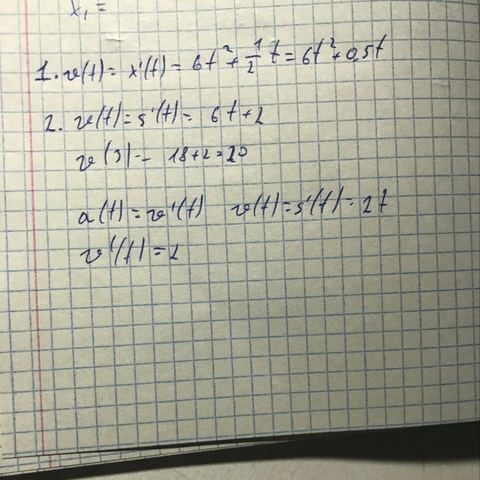 x₁ =
1. v(t) = x'(t) = 6t² + 1/2 t = 6t² + 0,5t
2. v(t) = s'(t) = 6t + 2
v(3) = 18 + 2 = 20
a(t) = v'(t) v(t) = s'(t) = 2t
v'(t) = 2